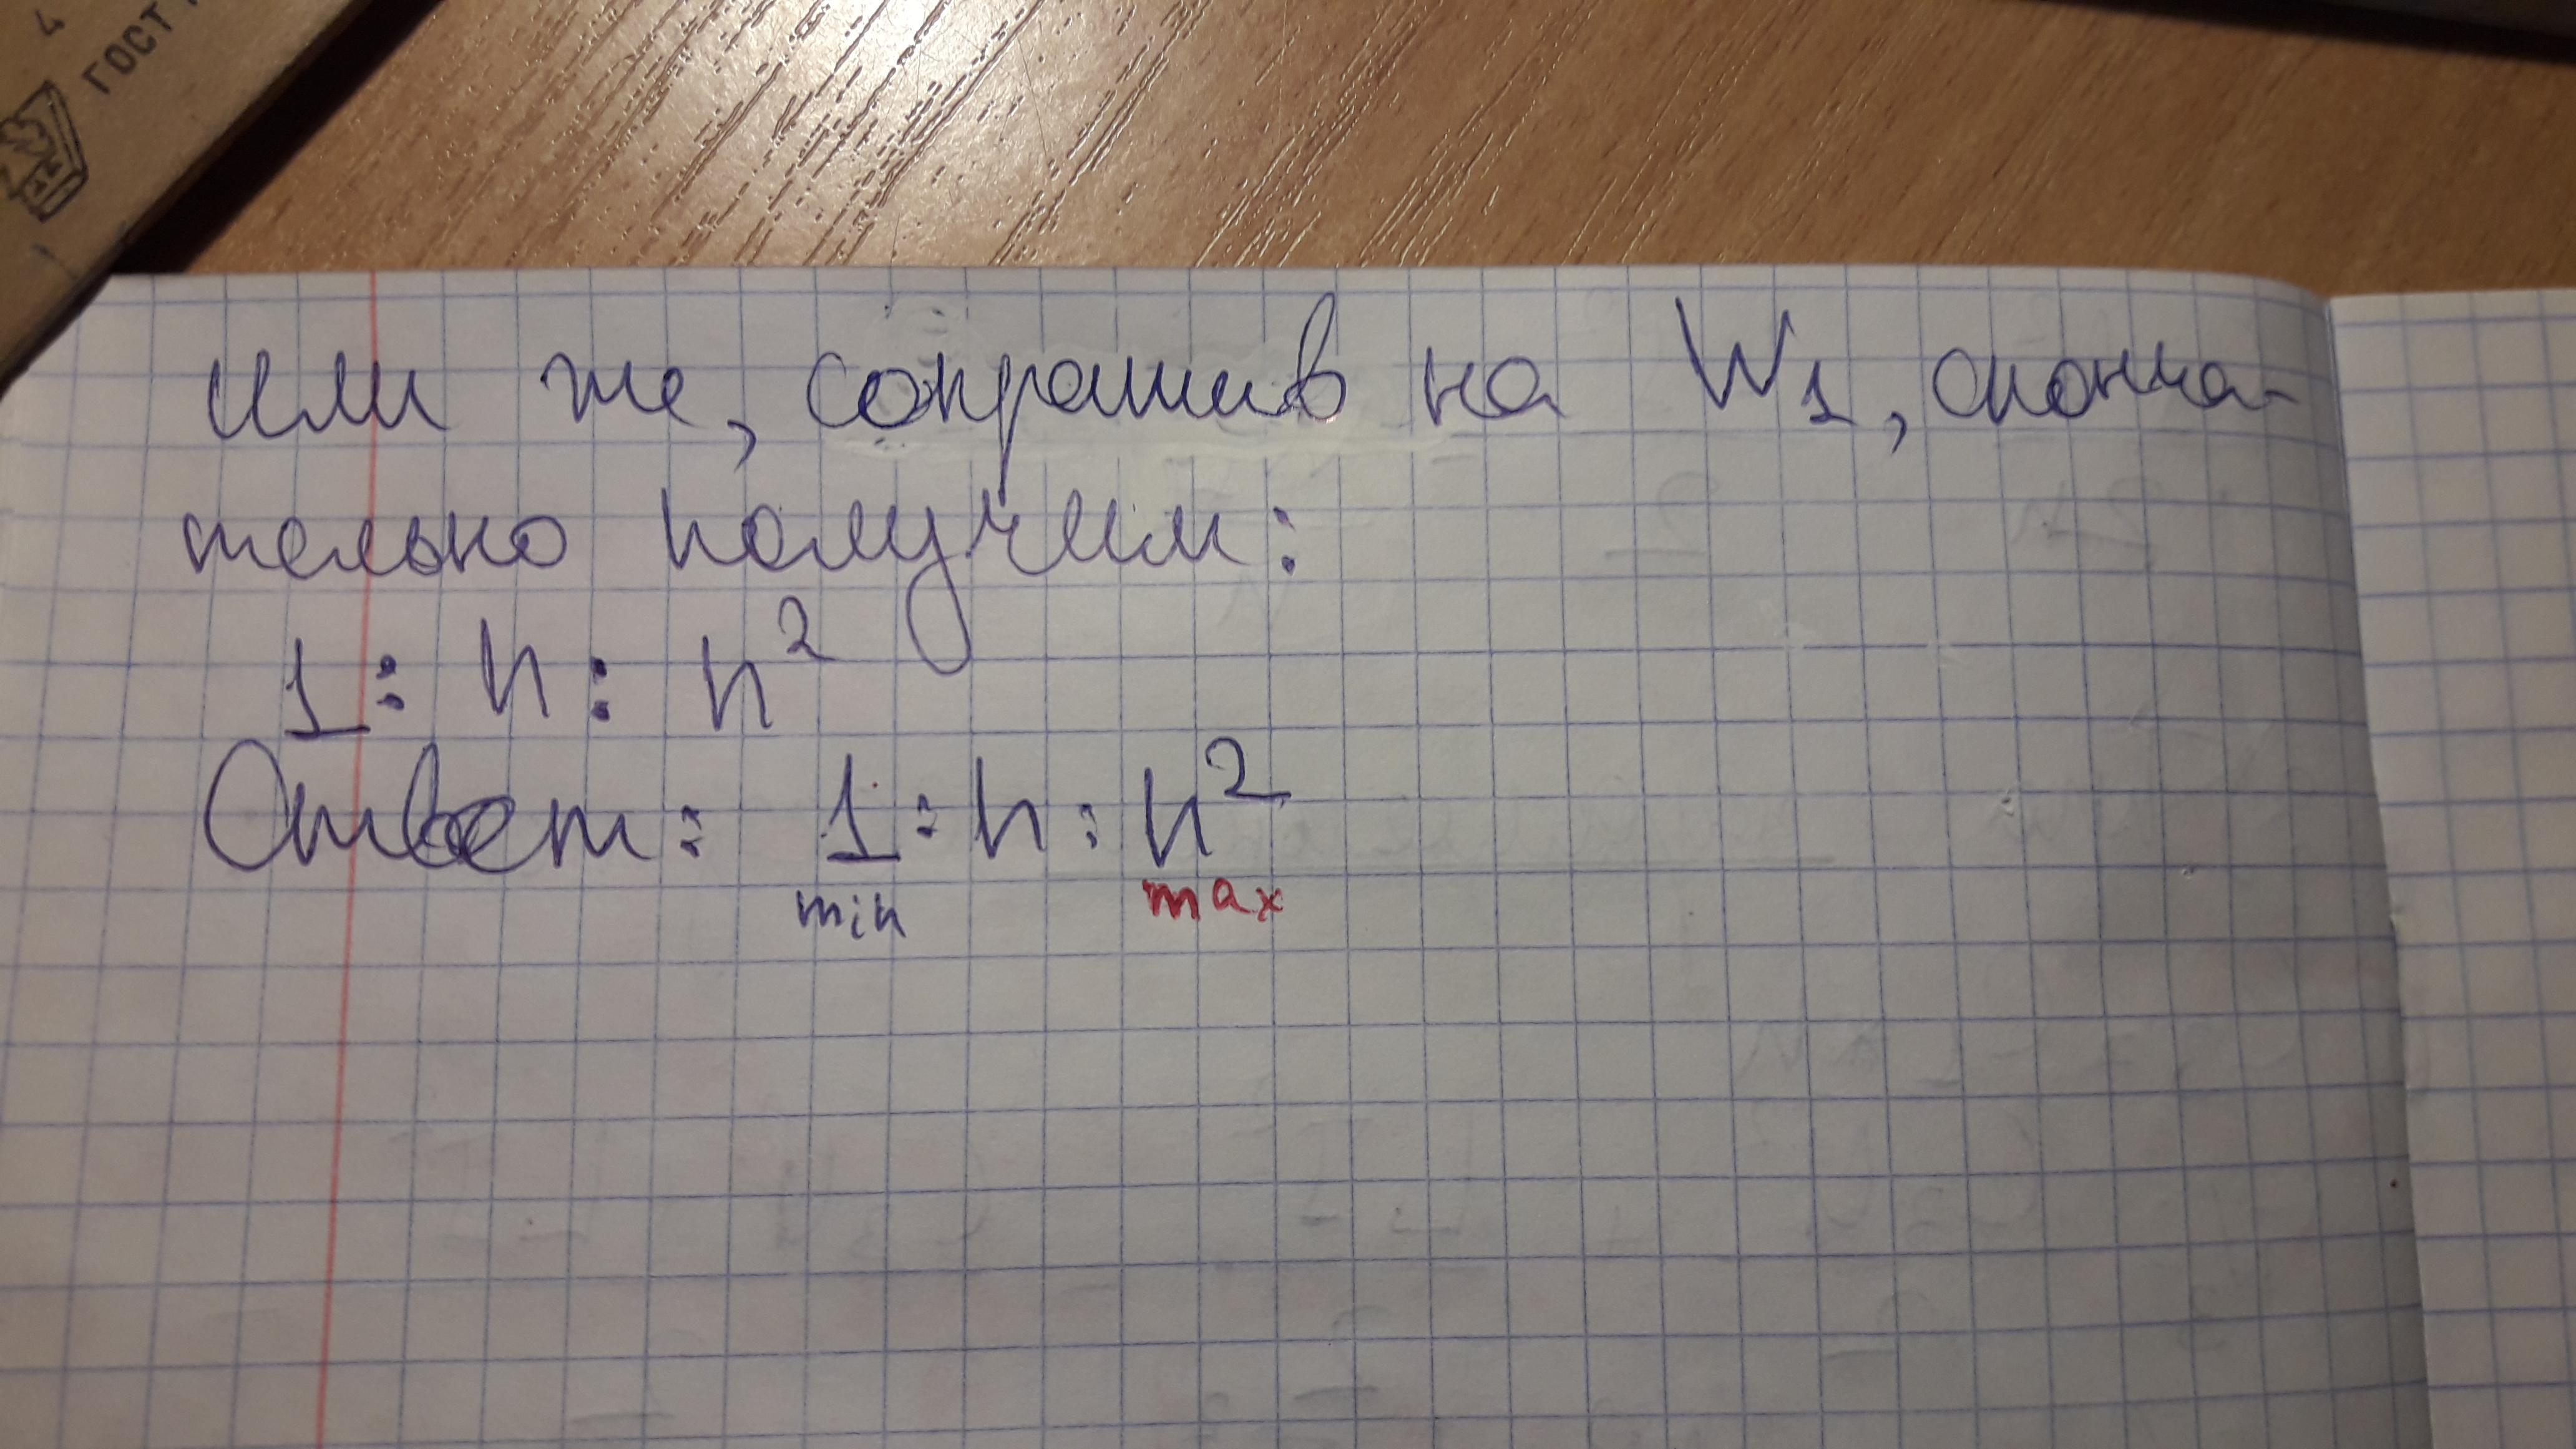 4
ГОСТ
или же, сократив на W₁, оконча-
тельно получим:
1 : n : n²
Ответ: 1 : n : n²
min max